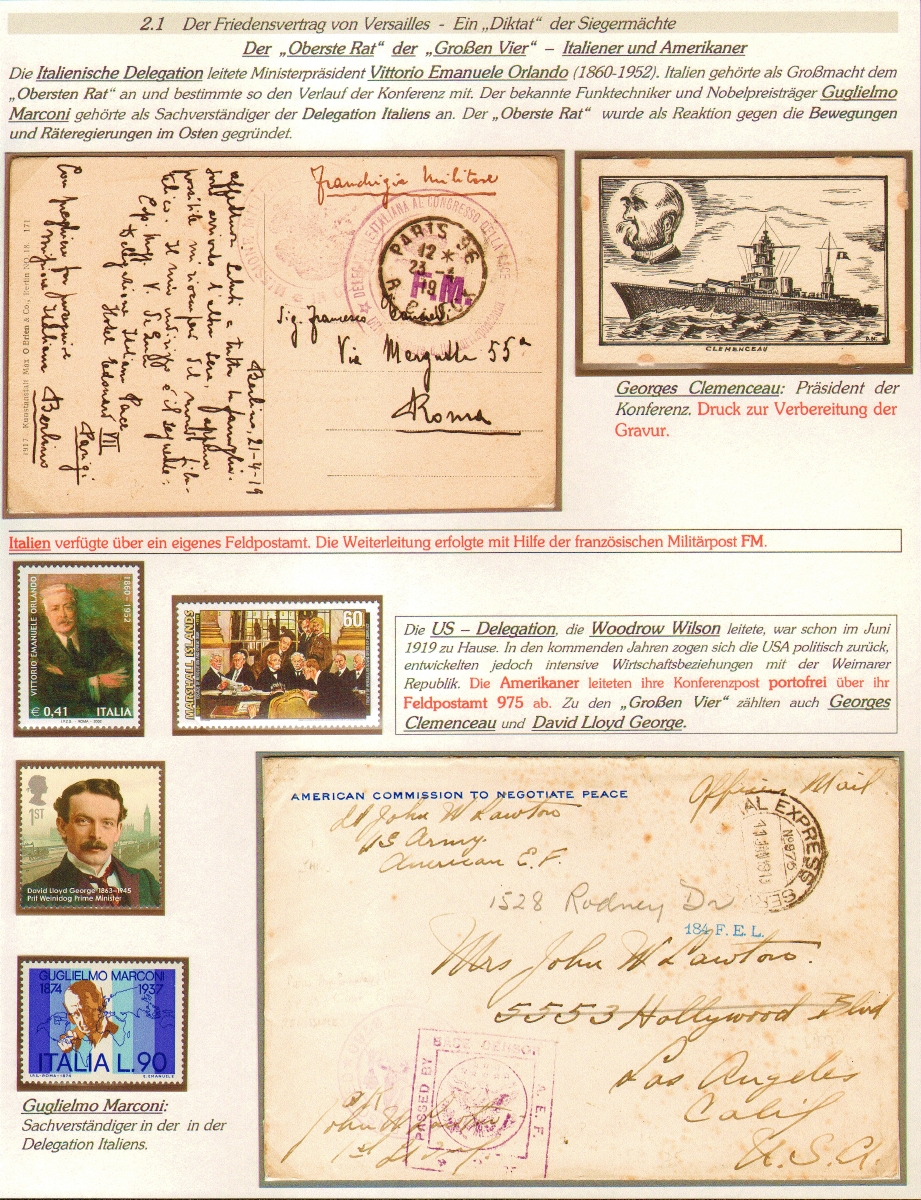 2.1 Der Friedensvertrag von Versailles - Ein „Diktat" der Siegermächte
Der „Oberste Rat" der „Großen Vier" – Italiener und Amerikaner
Die Italienische Delegation leitete Ministerpräsident Vittorio Emanuele Orlando (1860-1952). Italien gehörte als Großmacht dem
„Obersten Rat" an und bestimmte so den Verlauf der Konferenz mit. Der bekannte Funktechniker und Nobelpreisträger Guglielmo
Marconi gehörte als Sachverständiger der Delegation Italiens an. Der „Oberste Rat" wurde als Reaktion gegen die Bewegungen
und Räteregierungen im Osten gegründet.
Franchigia Militare
DELEGAZIONE ITALIANA AL CONGRESSO DELLA PACE
PARIS 96
12 *
19
F.M.
Sig. Francesco
Via Margutta 55a
Roma
Berlino, 21-4-19
affettuosi saluti a tutta la famiglia.
Delegazione Italiana Pace
Hotel Edouard VII
Parigi
Missione Italiana
Berlino
1917. Kunstanstalt Max O'Brien & Co., Berlin NO. 18. 171
CLEMENCEAU
Georges Clemenceau: Präsident der
Konferenz. Druck zur Verbereitung der
Gravur.
Italien verfügte über ein eigenes Feldpostamt. Die Weiterleitung erfolgte mit Hilfe der französischen Militärpost FM.
VITTORIO EMANUELE ORLANDO
1860 - 1952
€ 0,41 ITALIA
I.P.Z.S. - ROMA - 2002
MARSHALL ISLANDS
60
Die US – Delegation, die Woodrow Wilson leitete, war schon im Juni
1919 zu Hause. In den kommenden Jahren zogen sich die USA politisch zurück,
entwickelten jedoch intensive Wirtschaftsbeziehungen mit der Weimarer
Republik. Die Amerikaner leiteten ihre Konferenzpost portofrei über ihr
Feldpostamt 975 ab. Zu den „Großen Vier" zählten auch Georges
Clemenceau und David Lloyd George.
1ST
David Lloyd George 1863–1945
Prif Weinidog Prime Minister
GUGLIELMO MARCONI
1874 1937
ITALIA L.90
Guglielmo Marconi:
Sachverständiger in der in der
Delegation Italiens.
AMERICAN COMMISSION TO NEGOTIATE PEACE
Officers Mail
Lt John W Lawton
US Army
American E.F.
AL EXPRESS
SERV
1528 Rodney Dr
184 F.E.L.
Mrs John W Lawton.
5553 Hollywood Blvd
Los Angeles
Calif
U.S.A.
PASSED BY
BASE CENSOR
A.E.F.
OK
John W Lawton
1st Lt